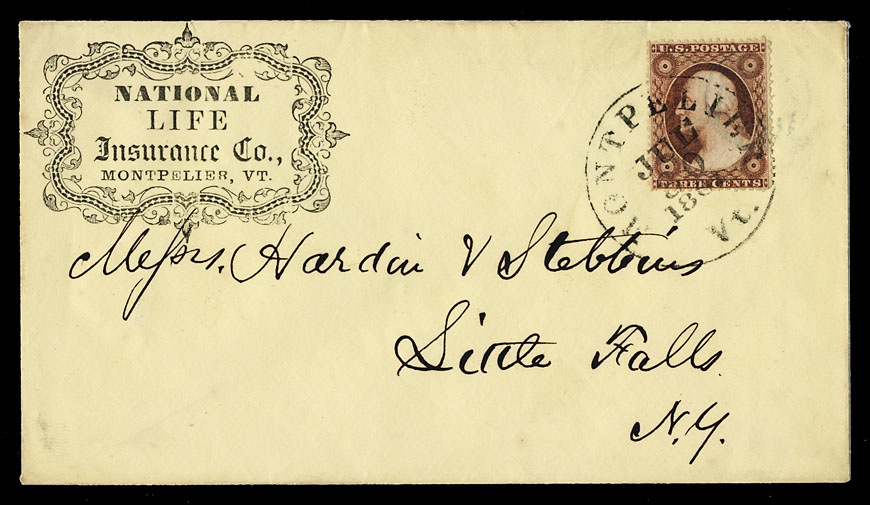 NATIONAL
LIFE
Insurance Co.,
MONTPELIER, VT.
U.S. POSTAGE
THREE CENTS
MONTPELIER
Vt.
Messrs. Hardin & Stebbins
Little Falls
N.Y.